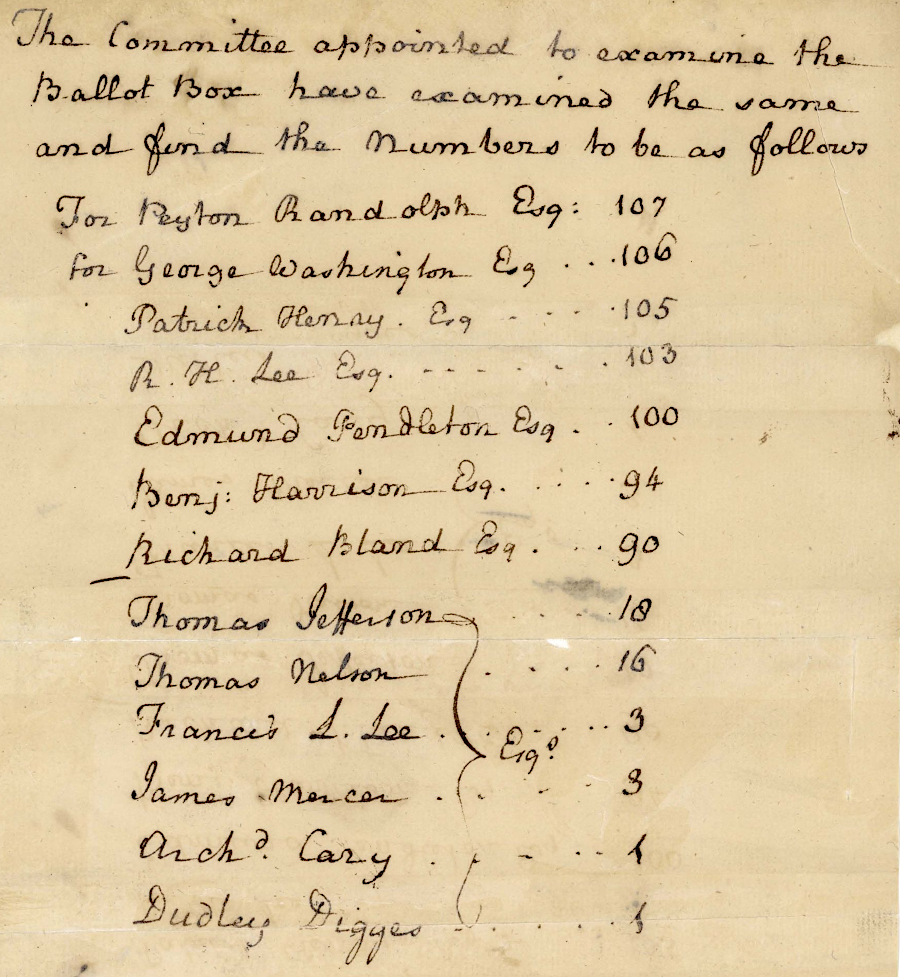 The Committee appointed to examine the
Ballot Box have examined the same
and find the Numbers to be as follows
For Peyton Randolph Esq: 107
for George Washington Esq . . . 106
Patrick Henry . Esq - - - - . 105
R. H. Lee Esq. - - - - - . 103
Edmund Pendleton Esq . . 100
Benj: Harrison Esq. . . . . 94
Richard Bland Esq . . . . 90
Thomas Jefferson . . . . . 18
Thomas Nelson . . . . . 16
Francis L. Lee . . . . . . 3
Esqs.
James Mercer . . . - - 3
Archd. Cary . . - - . . 1
Dudley Digges . . . . . 1